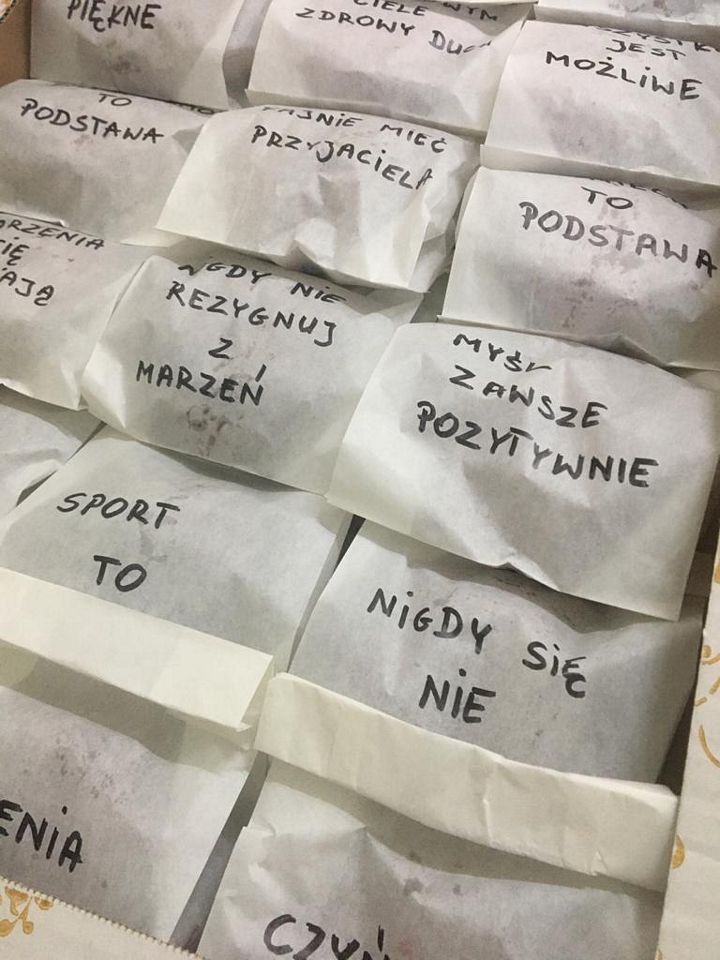 PIĘKNE
CIELE
ZDROWY DUCH
JEST
MOŻLIWE
TO
PODSTAWA
FAJNIE MIEĆ
PRZYJACIELA
TO
PODSTAWA
MARZENIA
SIĘ
NIGDY NIE
REZYGNUJ
Z
MARZEŃ
MYŚL
ZAWSZE
POZYTYWNIE
SPORT
TO
NIGDY SIĘ
NIE
ENIA
CZYŃ